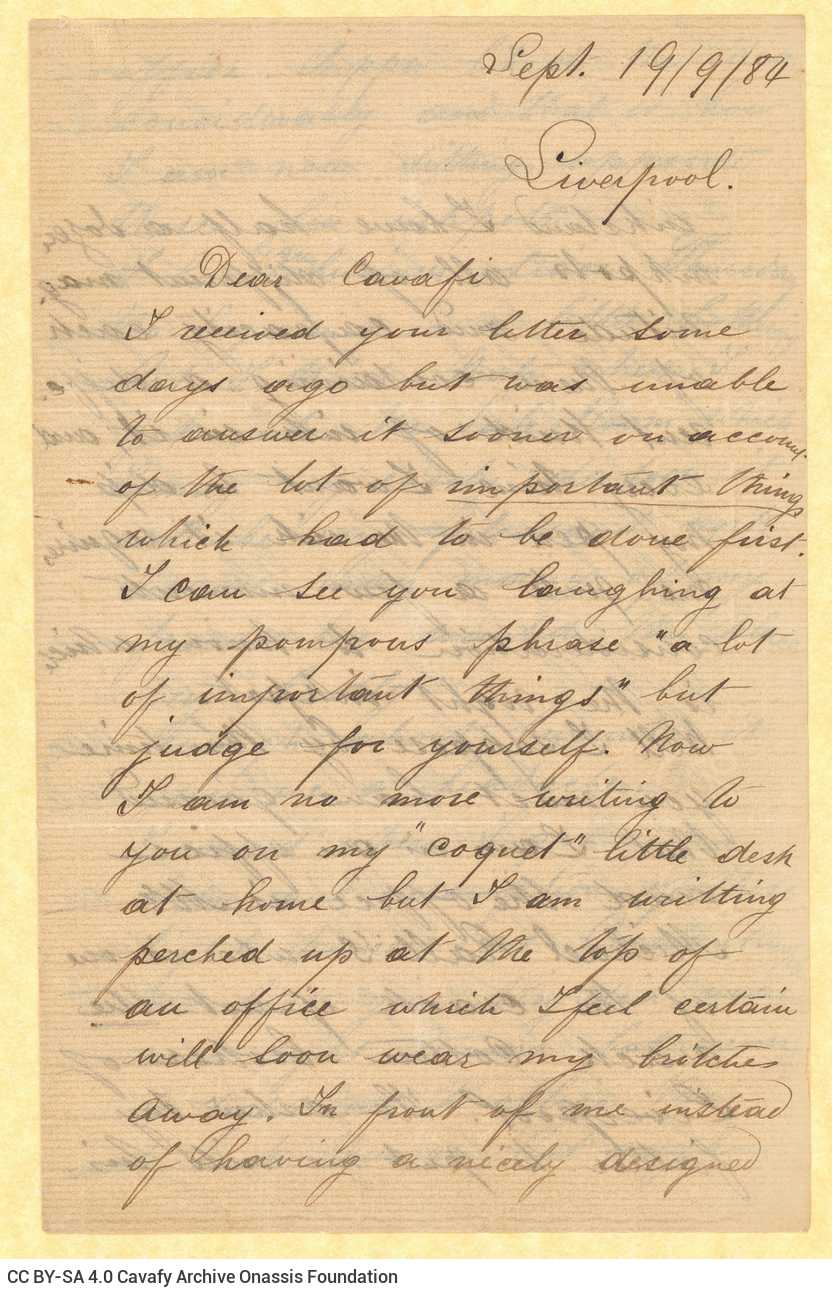 Sept. 19/9/84
Liverpool.
Dear Cavafi
I received your letter some
days ago but was unable
to answer it sooner on account
of the lot of important things
which had to be done first.
I can see you laughing at
my pompous phrase "a lot
of important things" but
judge for yourself. Now
I am no more writing to
you on my "coquet" little desk
at home but I am writting
perched up at the top of
an office which I feel certain
will soon wear my britches
away. In front of me instead
of having a nicely designed
CC BY-SA 4.0 Cavafy Archive Onassis Foundation